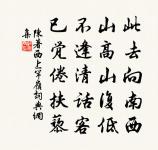 此去向南西
山高山復低
不逢清話客
已覺倦扶藜
陳著西上罕嶺詞典網
集